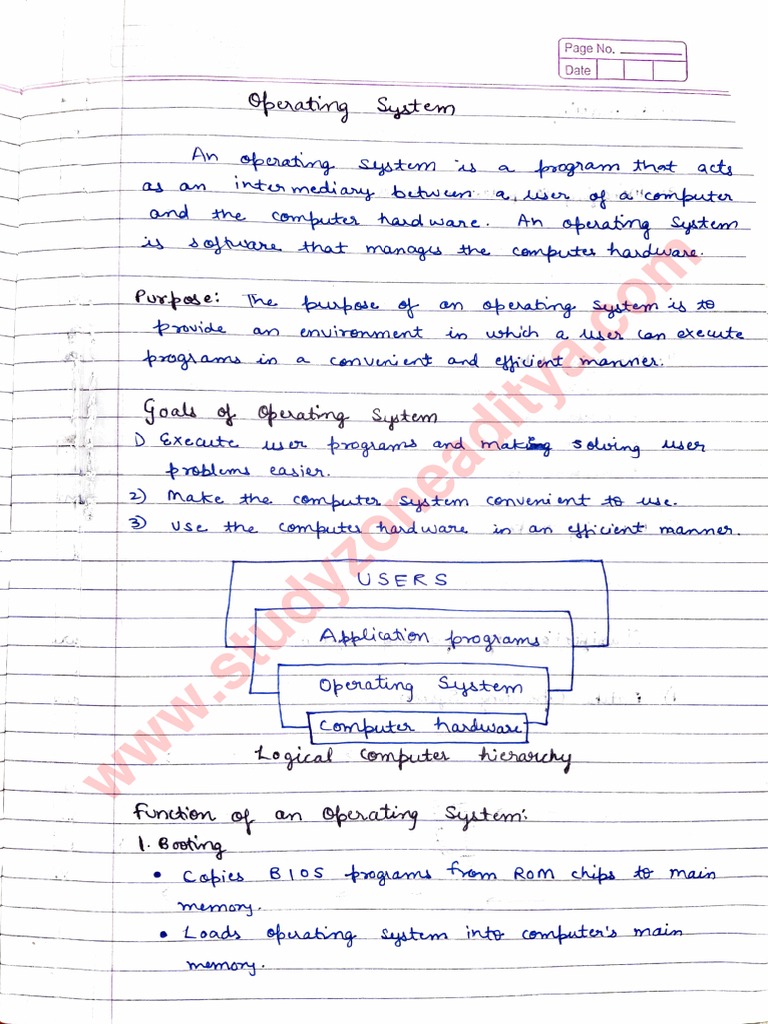 Page No.
Date
Operating System
An operating system is a program that acts
as an intermediary between a user of a computer
and the computer hardware. An operating system
is software that manages the computer hardware.
Purpose: The purpose of an operating system is to
provide an environment in which a user can execute
programs in a convenient and efficient manner.
Goals of Operating System
1) Execute user programs and making solving user
problems easier.
2) Make the computer system convenient to use.
3) Use the computer hardware in an efficient manner.
USERS
Application programs
Operating System
Computer hardware
Logical computer hierarchy
Function of an Operating System:
1. Booting
• Copies BIOS programs from ROM chips to main
memory.
• Loads operating system into computer's main
memory.
www.studyzoneaditya.com